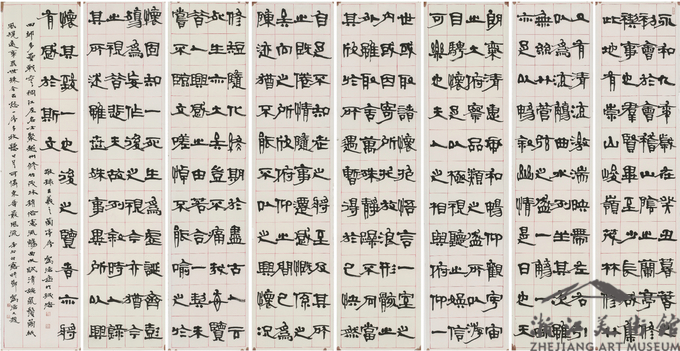 永和九年歲在癸丑暮春之
初會于會稽山陰之蘭亭脩
稧事也群賢畢至少長咸集
此地有崇山峻嶺茂林脩竹
又有清流激湍映帶左右引
以為流觴曲水列坐其次雖
無絲竹管弦之盛一觴一詠
亦足以暢敘幽情是日也天
朗氣清惠風和暢仰觀宇宙
之大俯察品類之盛所以遊
目騁懷足以極視聽之娛信
可樂也夫人之相與俯仰一
世或取諸懷抱悟言一室之
內或因寄所託放浪形骸之
外雖趣舍萬殊靜躁不同當
其欣於所遇暫得於己快然
自足不知老之將至及其所
之既惓情隨事遷感慨係之
矣向之所欣俯仰之間已為
陳迹猶不能不以之興懷況
脩短隨化終期於盡古人云
死生亦大矣豈不痛哉每覽
昔人興感之由若合一契未
嘗不臨文嗟悼不能喻之於
懷固知一死生為虛誕齊彭
殤為妄作後之視今亦由今
之視昔悲夫故列敘時人錄
其所述雖世殊事異所以興
懷其致一也後之覽者亦將
有感於斯文
浙江美術館
ZHEJIANG ART MUSEUM